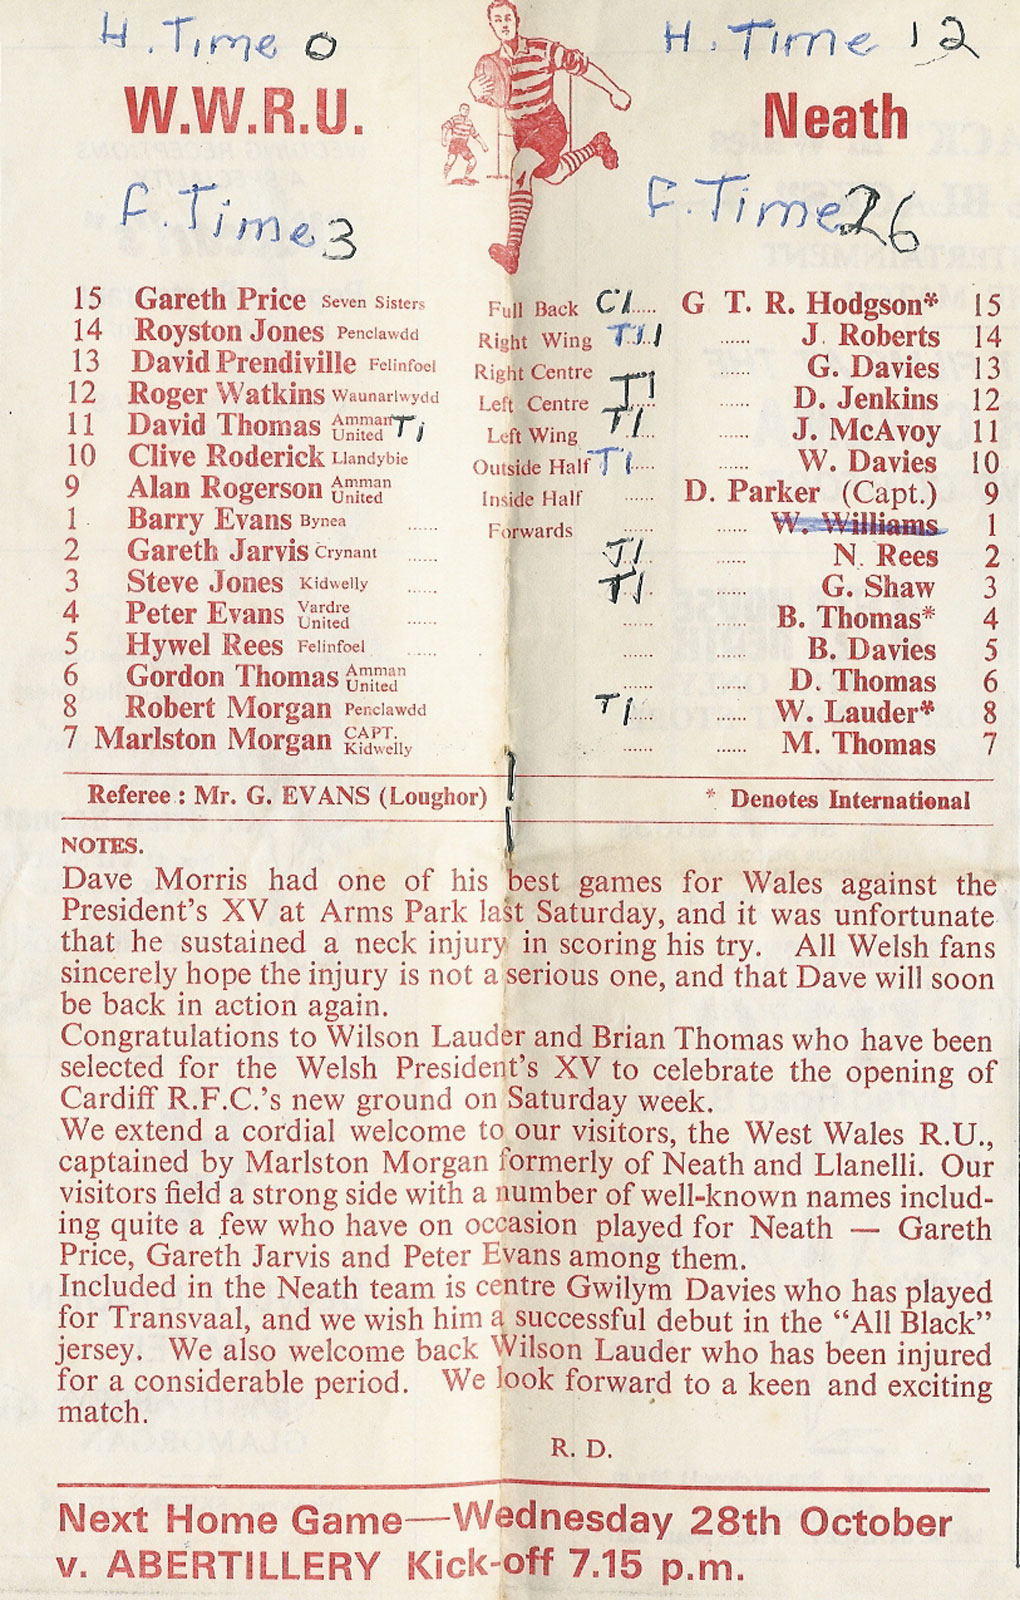 H. Time 0
H. Time 12
W.W.R.U.
Neath
F. Time 3
F. Time 26
15 Gareth Price Seven Sisters Full Back C1 ...... G T. R. Hodgson* 15
14 Royston Jones Penclawdd Right Wing T11 ...... J. Roberts 14
13 David Prendiville Felinfoel Right Centre ...... G. Davies 13
12 Roger Watkins Waunarlwydd Left Centre T1 ...... D. Jenkins 12
11 David Thomas Amman United T1 Left Wing T1 ...... J. McAvoy 11
10 Clive Roderick Llandybie Outside Half T1 ...... W. Davies 10
9 Alan Rogerson Amman United Inside Half ...... D. Parker (Capt.) 9
1 Barry Evans Bynea ...... Forwards ...... ...... W. Williams 1
2 Gareth Jarvis Crynant ...... T1 ...... N. Rees 2
3 Steve Jones Kidwelly ...... T1 ...... G. Shaw 3
4 Peter Evans Vardre United ...... ...... ...... B. Thomas* 4
5 Hywel Rees Felinfoel ...... ...... ...... B. Davies 5
6 Gordon Thomas Amman United ...... ...... D. Thomas 6
8 Robert Morgan Penclawdd T1 ...... W. Lauder* 8
7 Marlston Morgan CAPT. Kidwelly ...... ...... M. Thomas 7
Referee : Mr. G. EVANS (Loughor) * Denotes International
NOTES.
Dave Morris had one of his best games for Wales against the
President's XV at Arms Park last Saturday, and it was unfortunate
that he sustained a neck injury in scoring his try. All Welsh fans
sincerely hope the injury is not a serious one, and that Dave will soon
be back in action again.
Congratulations to Wilson Lauder and Brian Thomas who have been
selected for the Welsh President's XV to celebrate the opening of
Cardiff R.F.C.'s new ground on Saturday week.
We extend a cordial welcome to our visitors, the West Wales R.U.,
captained by Marlston Morgan formerly of Neath and Llanelli. Our
visitors field a strong side with a number of well-known names includ-
ing quite a few who have on occasion played for Neath — Gareth
Price, Gareth Jarvis and Peter Evans among them.
Included in the Neath team is centre Gwilym Davies who has played
for Transvaal, and we wish him a successful debut in the “All Black”
jersey. We also welcome back Wilson Lauder who has been injured
for a considerable period. We look forward to a keen and exciting
match.
R. D.
Next Home Game—Wednesday 28th October
v. ABERTILLERY Kick-off 7.15 p.m.